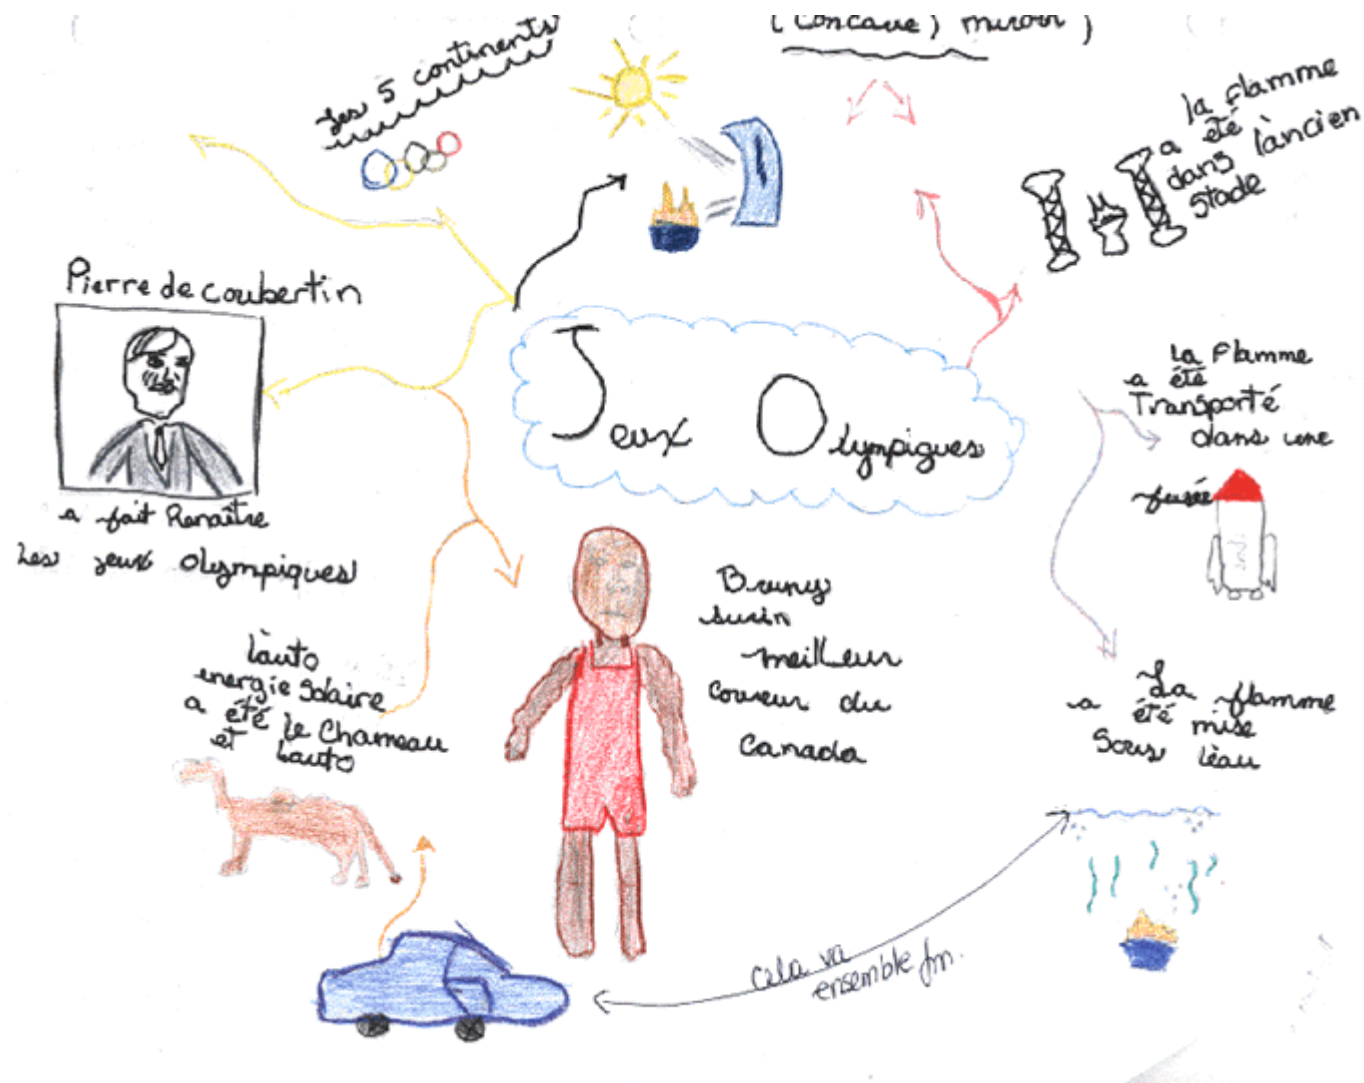 Les 5 continents
(Concave) miroir)
la flamme
a été
dans l'ancien
stade
Pierre de coubertin
a fait Renaître
Les jeux Olympiques
Jeux Olympiques
la Flamme
a été
Transporté
dans une
fusée
Bruny
surin
meilleur
coureur du
Canada
L'auto
energie Solaire
a été le Chameau
et L'auto
La flamme
a été mise
Sous l'eau
cela va
ensemble fm.